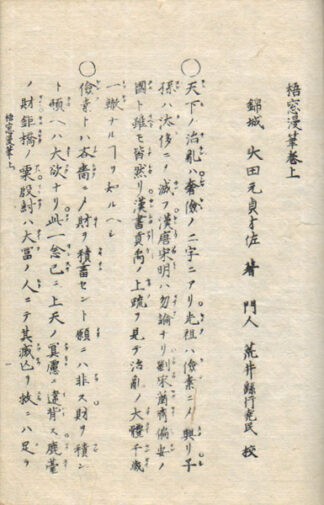 梧窓漫筆巻上
錦城 大田元貞才佐 著 門人 荒井縣行堯民 校
○天下ノ治亂ハ奢儉ノ二字ニアリ先祖ハ儉素ニメ興リ子
孫ハ汰侈ニメ滅フ漢唐宋明ハ勿論ナリ劉宋蕭齊偏安ノ
國ト雖モ皆然リ漢書貢禹ノ上疏ヲ見テ治亂ノ大體千歳
一轍ナルヿヲ知ルヘシ
○儉素トハ吝嗇ノ財ヲ積畜セント願ニハ非ス財ヲ積ン
ト願ヘハ大欲ナリ此一念已ニ上天ノ冥慮ニ違背ス鹿臺
ノ財鉅橋ノ粟殷紂ハ大冨ノ人ニテ其滅亡ヲ救ニハ足ラ
梧窓漫筆上